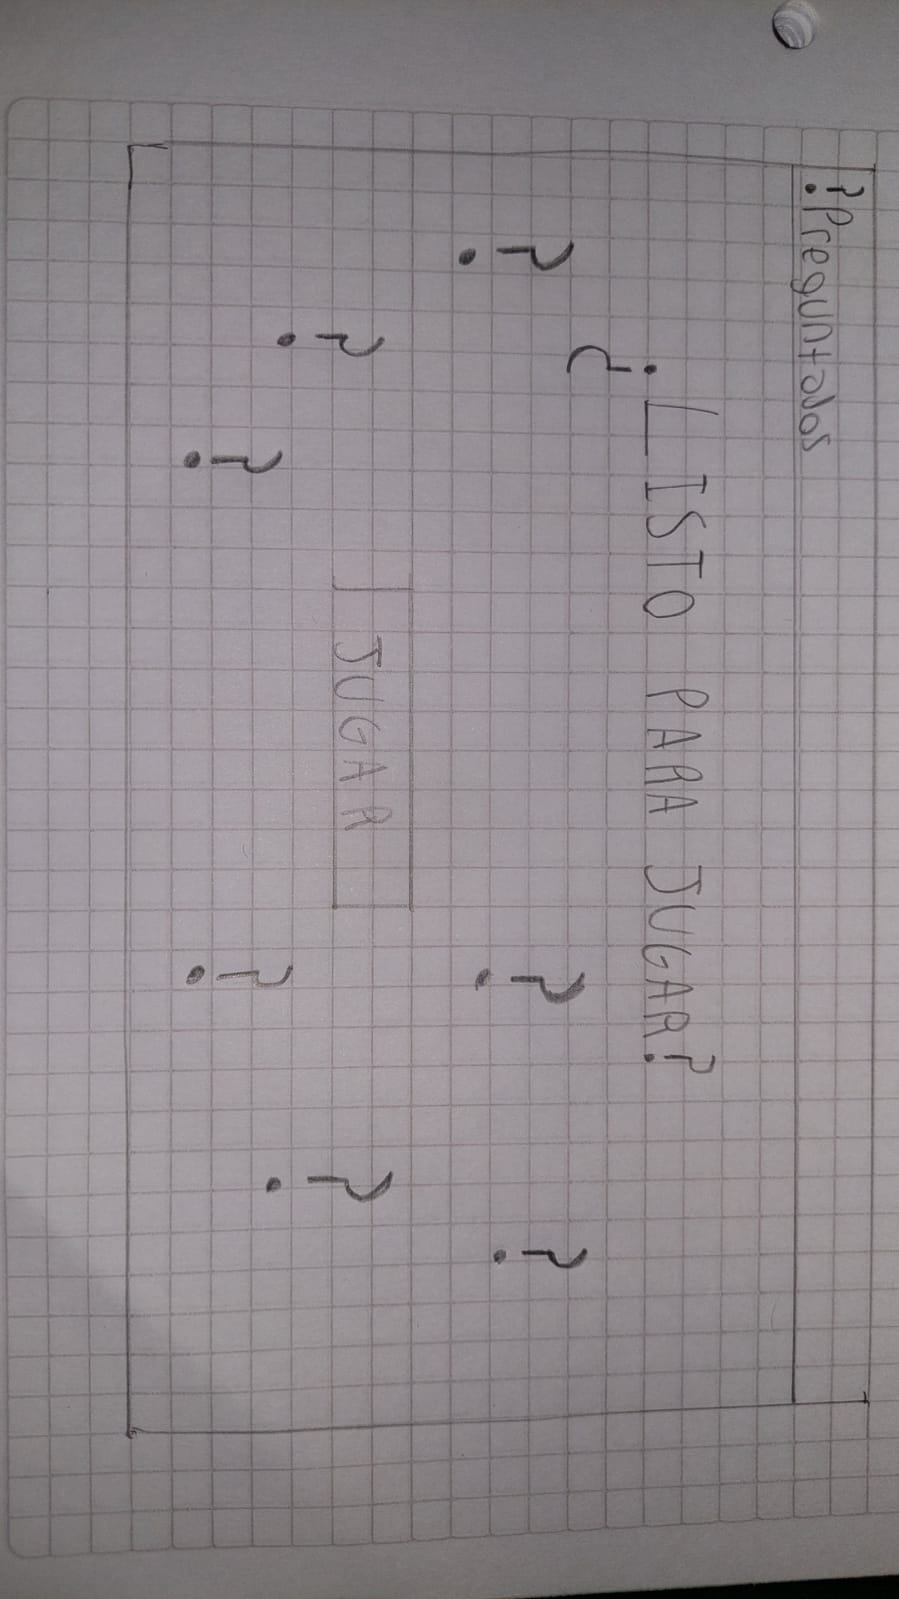 ?Preguntados
¿LISTO PARA JUGAR?
? ?
?
? ?
JUGAR
? ?